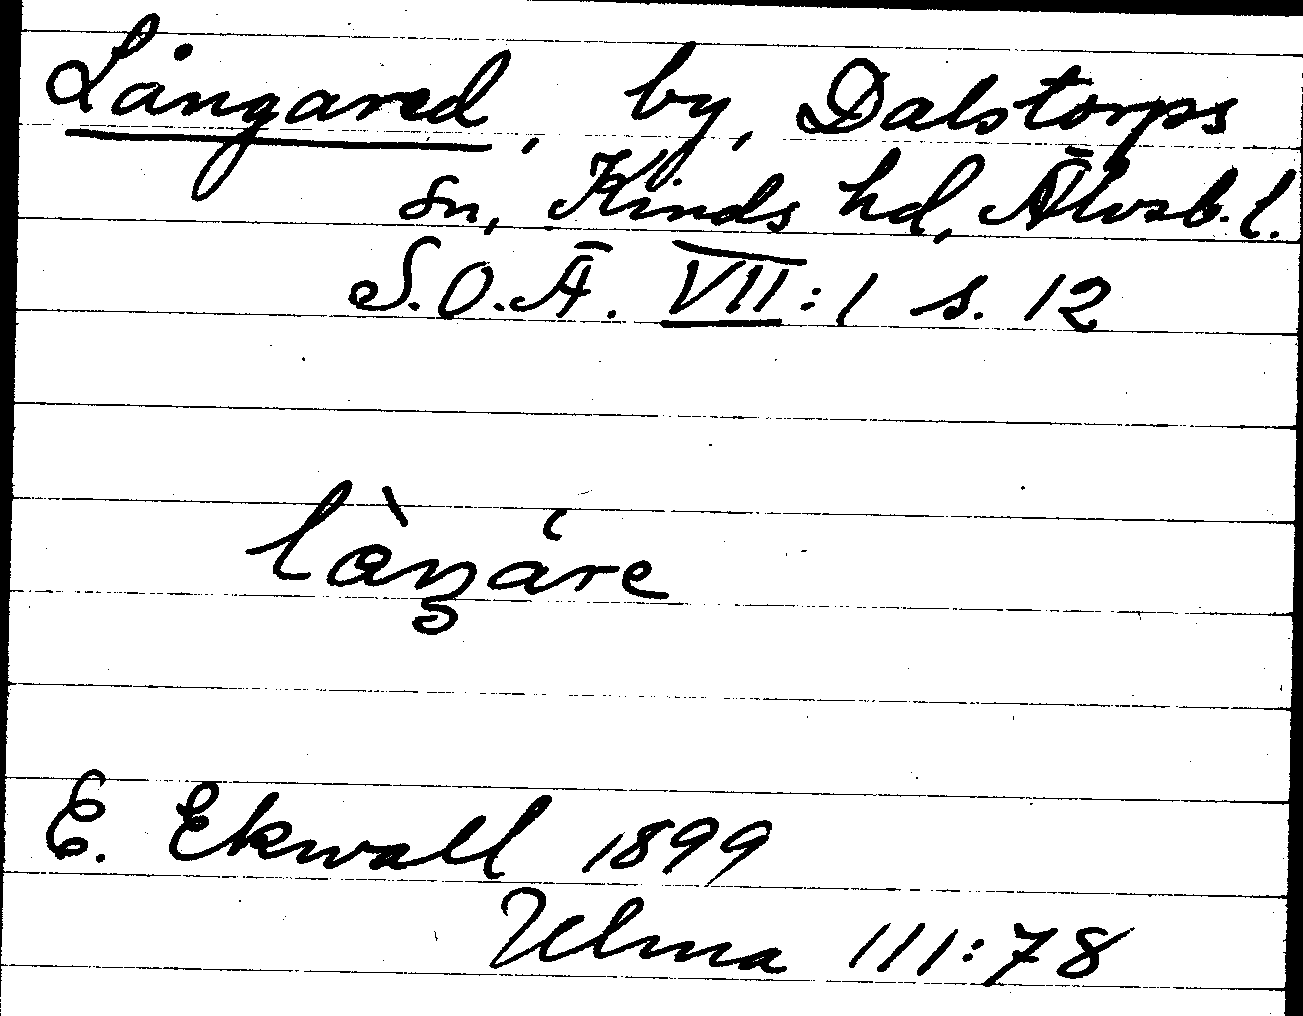 Långared, by, Dalstorps
sn, Kinds hd, Älvsb. l.
S.O.Ä. VII:1 s. 12
làŋáre
E. Ekwall 1899
Ulma 111:78